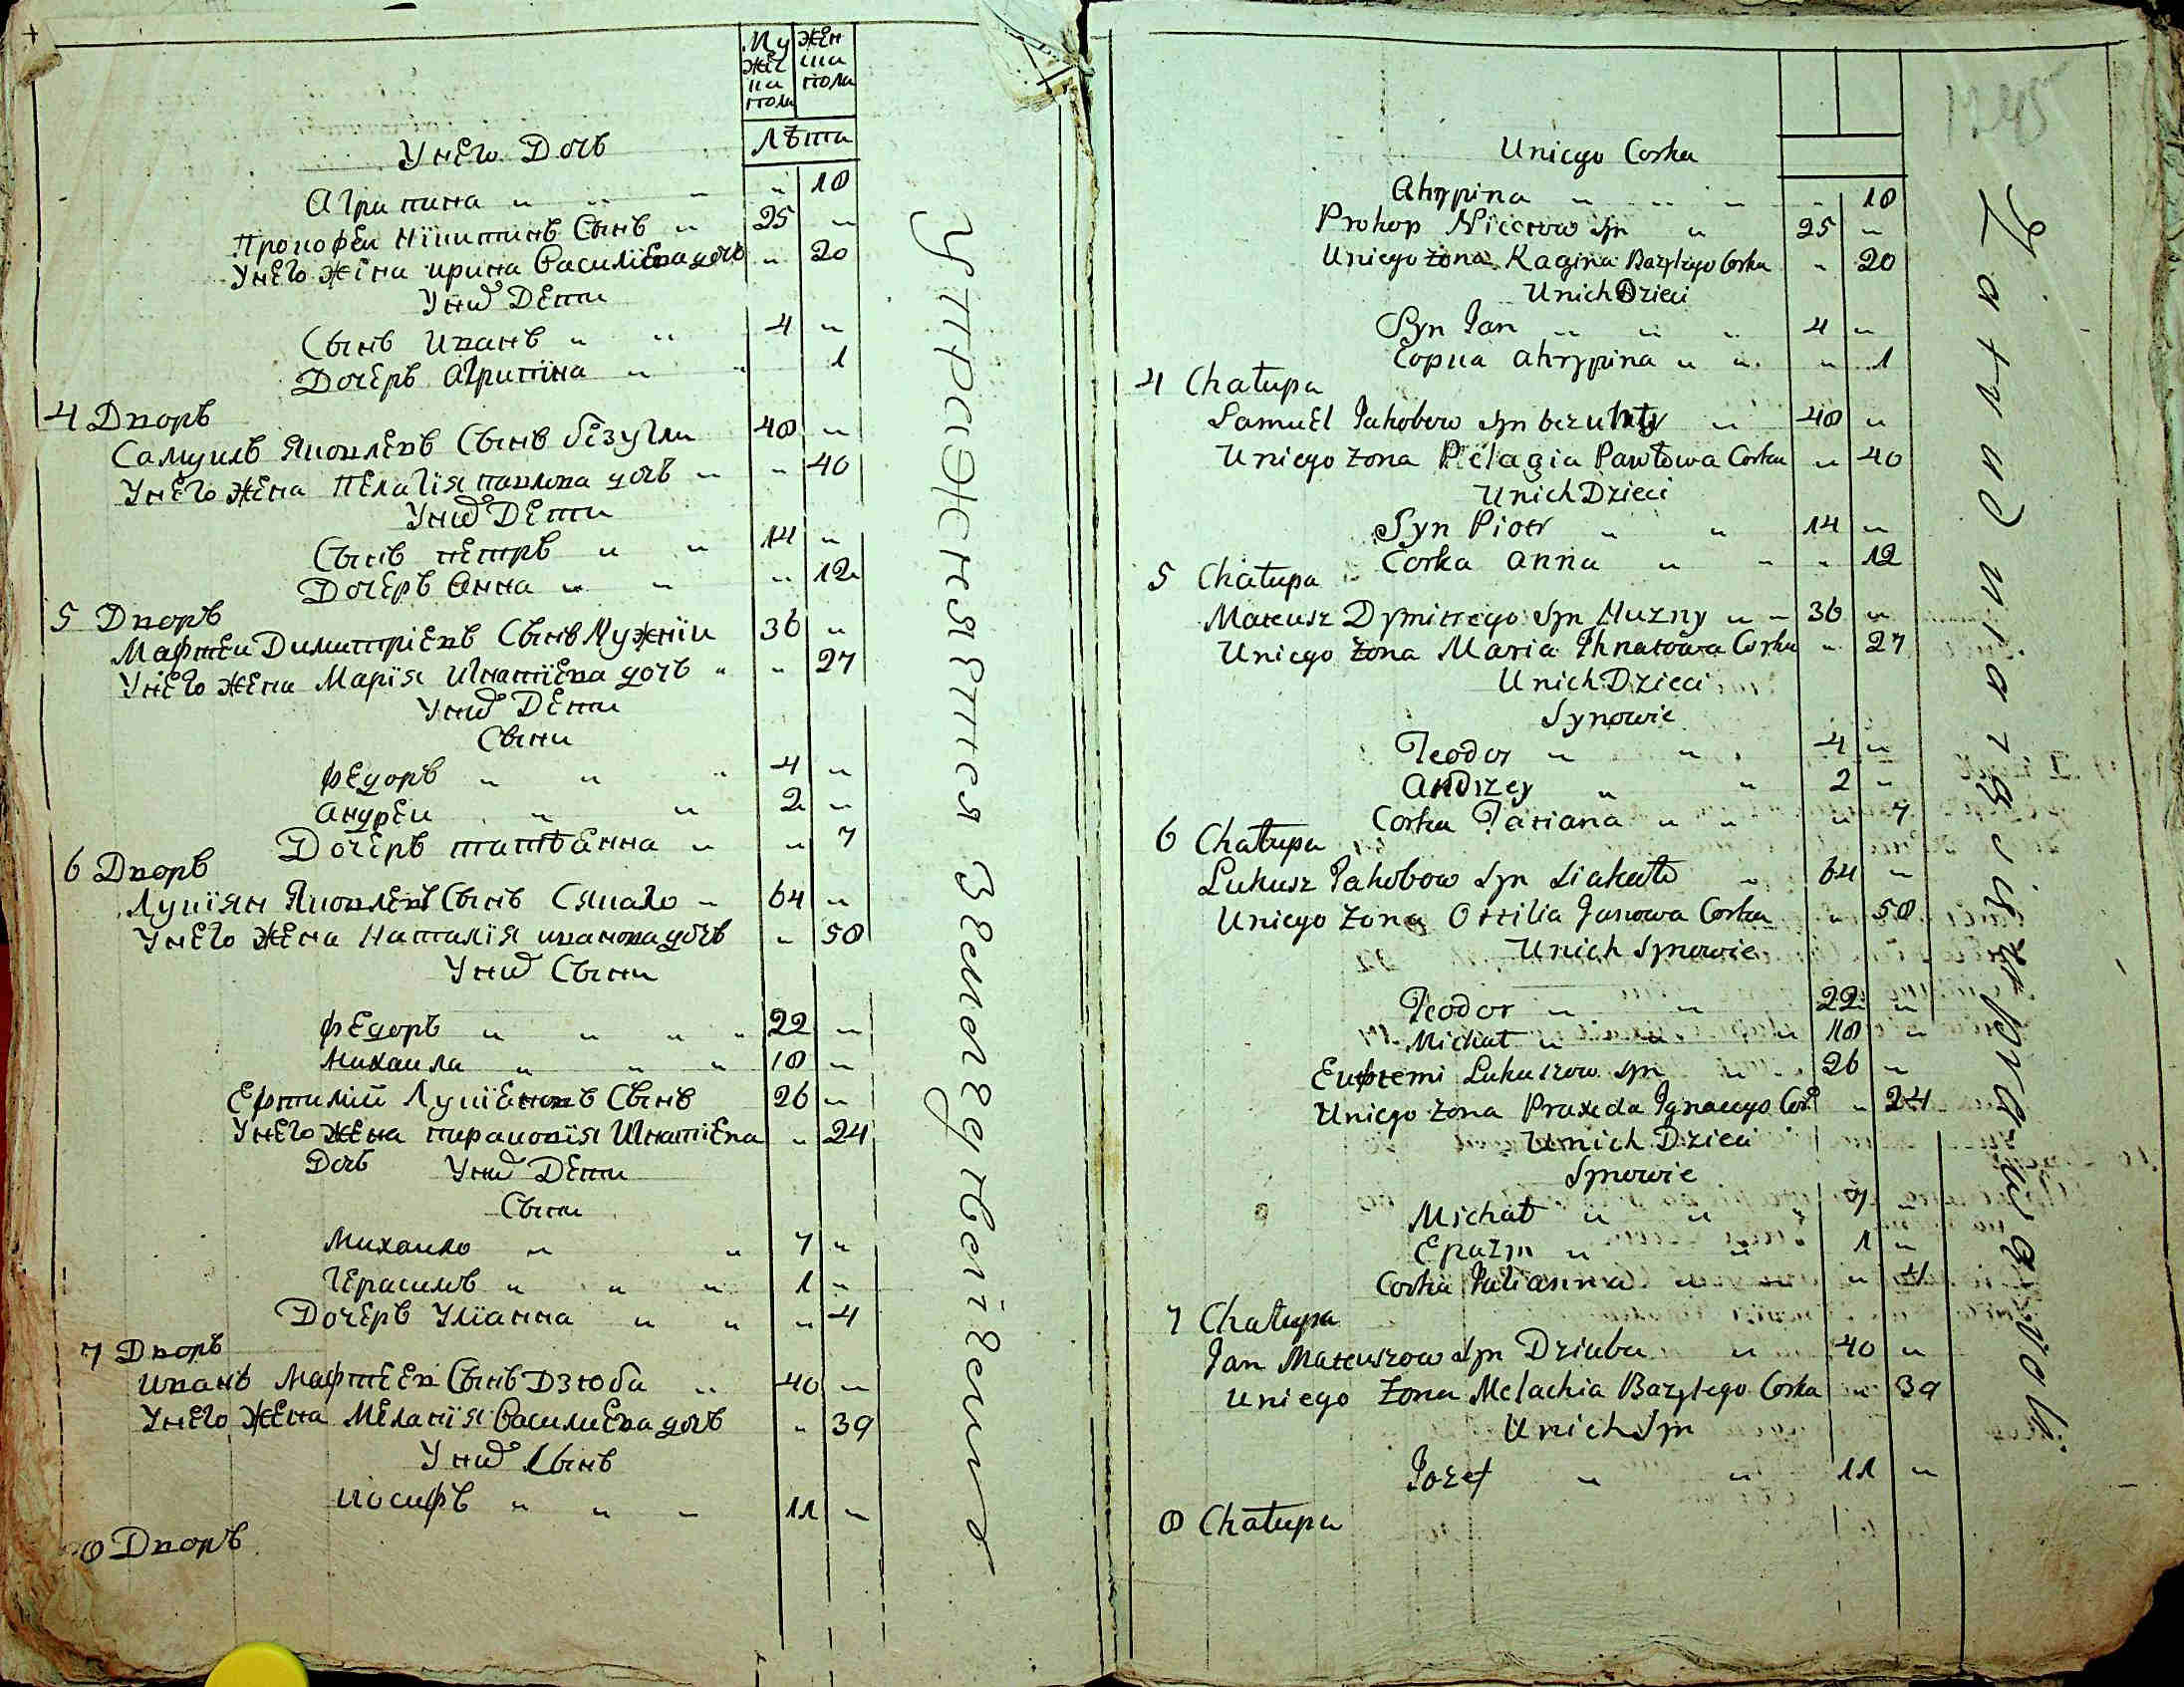 Му жен
жес ска
ка пола
пола
Лѣта
Унего Дочь
Агрипина " " " " 18
Прокофеи Никитинъ Сынъ " 25 "
Унего жена ирина Василиева дочь " 20
Уних Дети
Сынъ иванъ " " 4 "
Дочерь Агрипина " " 1
4 Дворъ
Самуилъ Яковлевъ Сынъ безугли 48 "
Унего жена Пелагія павлова дочъ " " 40
Уних Дети
Сынъ петръ " " 14 "
Дочерь Анна " " " 12
5 Дворъ
Мафтеи Димитріевъ Сынъ Мужнїи 36 "
Унего жена Марія Игнатїева дочъ " " 27
Уних Дети
Сыни
Федоръ " " " 4 "
андреи " " 2 "
Дочерь татѣанна " " 7
6 Дворъ
Лукіян Яковлевъ Сынъ Сякало " 64 "
Унего жена Наталія иванова дочъ " 58
Уних Сыни
Федоръ " " " " 22 "
Михаила " " " 18 "
Ефтимій Лукіяновъ Сынъ 26 "
Унего жена пираковія Игнатіева " 24
Дочь Уних Дети
Сыни
Михаило " " 7 "
Герасимъ " " " 1 "
Дочерь Уліанна " " " 4
7 Дворъ
иванъ Мафтеевъ Сынъ Дзюба " 40 "
Унего жена Меланія Василиева дочъ " 39
Уних Сынъ
иосифъ " " " 11 "
8 Дворъ
1245
Uniego Corka
Ahrypina " " " " 18
Prokop Nicetow Syn " 25 "
Uniego żona Raginа Bazylego Corka " 20
Unich Dzieci
Syn Jan " " " 4 "
Corka ahrypina " " " 1
4 Chałupa
Samuel Jakobow Syn bezuhły " 48 "
Uniego żona Pelagia Pawłowa Corka " 40
Unich Dzieci
Syn Piotr " " 14 "
Corka anna " " " 12
5 Chałupa
Mateusz Dymitrego Syn Muzny " " 36 "
Uniego żona Maria Ihnatowa Corka " 27
Unich Dzieci
Synowie
Teodor " " 4 "
andrzey " " 2 "
Corka Tatiana " " " 7
6 Chałupa
Lukasz Jakobow Syn Siakało " 64 "
Uniego żona Ottilia Janowa Corka " 58
Unich Synowie
Teodor " " 22 "
Michał " " " 18 "
Eufremi Lukaszow Syn " 26 "
Uniego żona Praxeda Ignacego Cor: " 24
Unich Dzieci
Synowie
Michał " " 7 "
Erazm " " 1 "
Corka Julianna " " " 4
7 Chałupa
Jan Mateuszow Syn Dziuba " 40 "
Uniego żona Melachia Bazylego Corka " 39
Unich Syn
Jozef " " 11 "
8 Chałupa